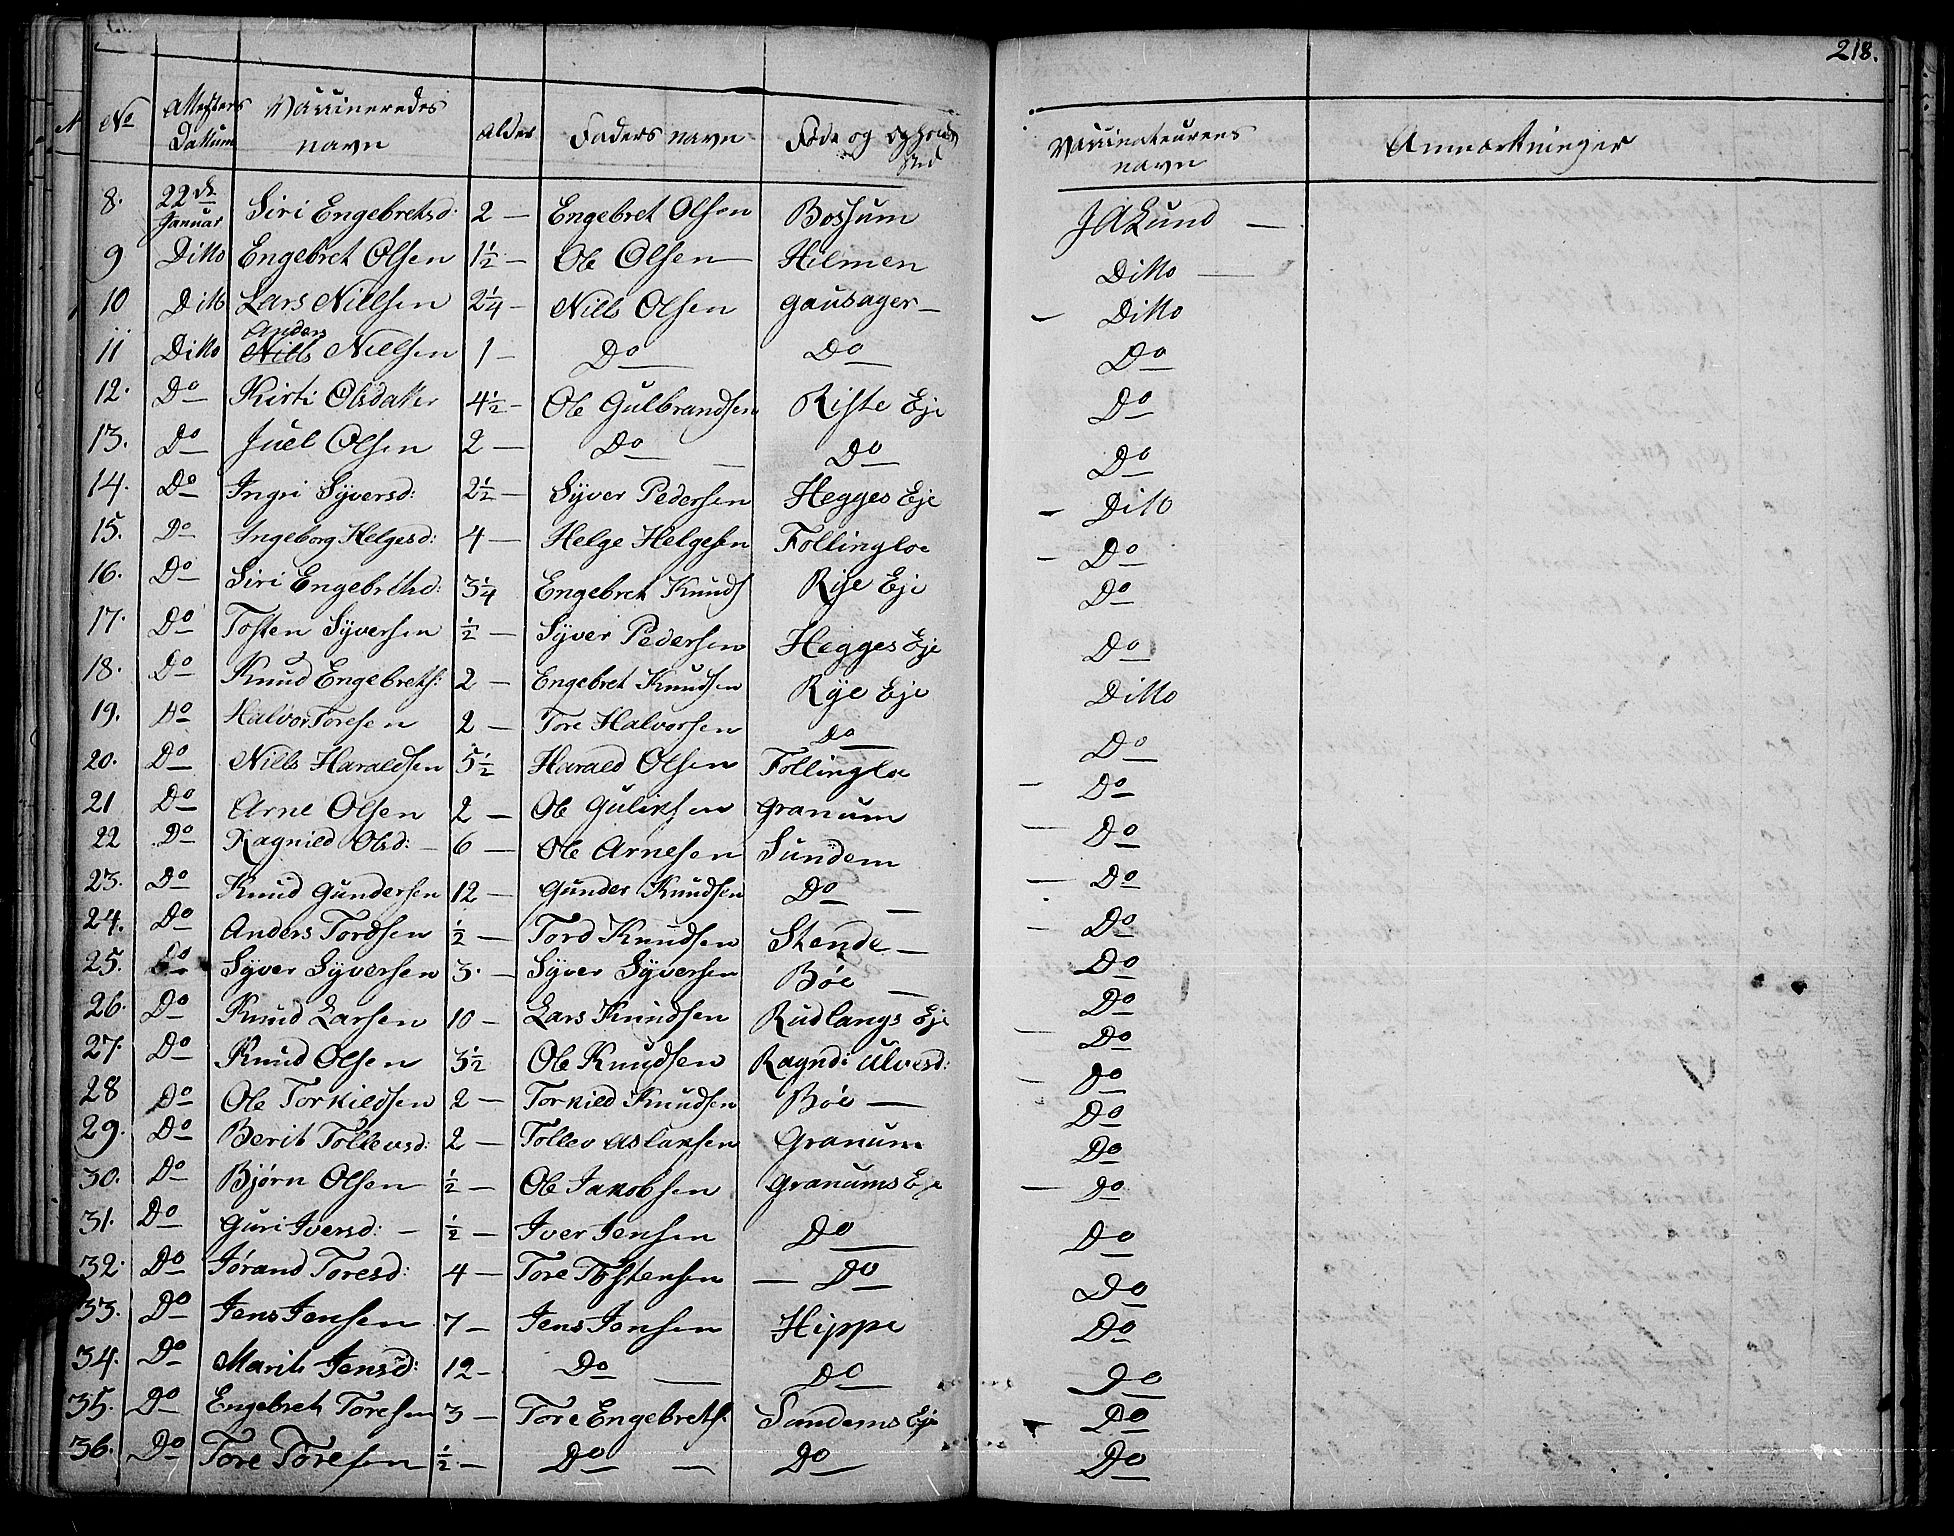 218.
No | Attesters Datum | Vaccineredes navn | Alder | Faders navn | Føde og Opholds sted | Vaccinateurens navn | Anmærkninger
8. | 22de Januar | Siri Engebretsd: | 2 — | Engebret Olsen | Bossum | J A Lund —
9 | Ditto | Engebret Olsen | 1½ — | Ole Olsen — | Hilmen | Ditto —
10 | Ditto | Lars Nillsen | 2¼ — | Nills Olsen | Gausager — | — Ditto
11 | Ditto | Anders Nills Nielsen | 1 — | Do — | Do | Do
12. | Do | Kirti Olsdatter | 4½ — | Ole Gulbrandsen | Riste Eje | Do
13. | Do | Juel Olsen | 2 — | Do — | Do | Do
14. | Do | Ingri Syversd: | 2½ — | Syver Pedersen | Hegges Eje | — Ditto
15. | Do | Ingeborg Helgesd: | 4 — | Helge Helgesen | Follingloe | — Do
16. | Do | Siri Engebretsd: | 3¼ | Engebret Knuds | Rye Eje | Do
17. | Do | Tosten Syversen | ½ — | Syver Pedersen | Hegges Eje | Do
18. | Do | Knud Engebrets: | 2 — | Engebret Knudsen | Rye Eje | Ditto
19. | Do | Halvor Toresen | 2 — | Tore Halvorsen | Do | Do
20. | Do | Nills Haraldsen | 5½ | Harald Olsen | Follingloe | — Do
21 | Do | Arne Olsen | 2 — | Ole Guliksen | Granum | — Do
22 | Do | Ragnild Olsd: — | 6 — | Ole Arnesen | Sundem | — Do
23. | Do | Knud Gundersen | 12 — | Gunder Knudsen | Do — | — Do
24. | Do | Anders Tordsen | ½ — | Tord Knudsen | Stende — | Do
25. | Do | Syver Syversen | 3. — | Syver Syversen | Bøe — | Do
26. | Do | Knud Larsen | 10 — | Lars Knudsen | Rudlangs Eje | — Do
27. | Do | Knud Olsen | 3½ | Ole Knudsen | Ragndi Ulvesd: | — Do
28 | Do | Ole Torkildsen | 2 — | Torkild Knudsen | Bøe — | Do
29. | Do | Berit Tollevsd: | 2 — | Tollev Aslaksen | Granum | Do
30. | Do | Bjørn Olsen | ½ — | Ole Jakobsen | Granums Eje | — Do
31. | Do | Guri Iversd: — | ½ — | Iver Jensen | Do — | Do
32. | Do | Jørand Toresd: | 4 — | Tore Tostensen | — Do | Do
33. | Do | Jens Jensen | 7 — | Jens Jensen | Hippe | Do
34. | Do | Marit Jensd: | 12 — | Do — | Do | Do
35. | Do | Engebret Toresen | 3 — | Tore Engebrets: | Sundems Eje | — Do
36. | Do | Tore Toresen | ½ — | Do — | Do | Do